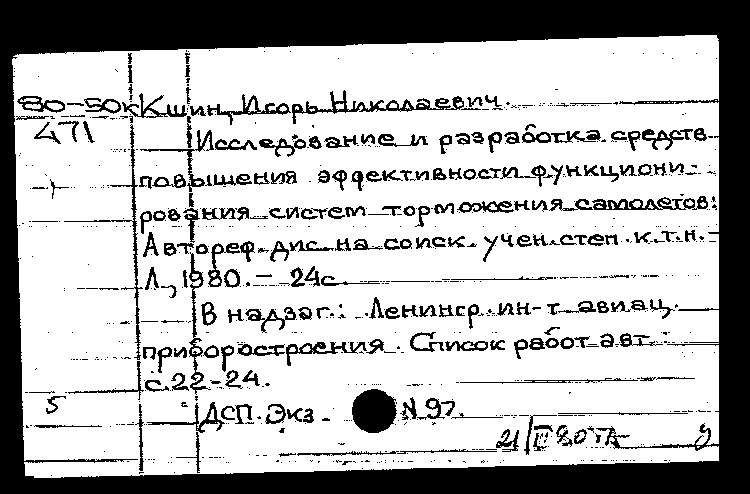 80-50к Кшин, Игорь Николаевич.
471
Исследование и разработка средств
повышения эффективности функциони-
рования систем торможения самолетов:
Автореф. дис. на соиск. учен. степ. к.т.н. -
Л., 1980. - 24с.
В надзаг.: Ленингр. ин-т авиац.
приборостроения. Список работ авт.:
с. 22-24.
5
ДСП. Экз. N 97.
21/III 80